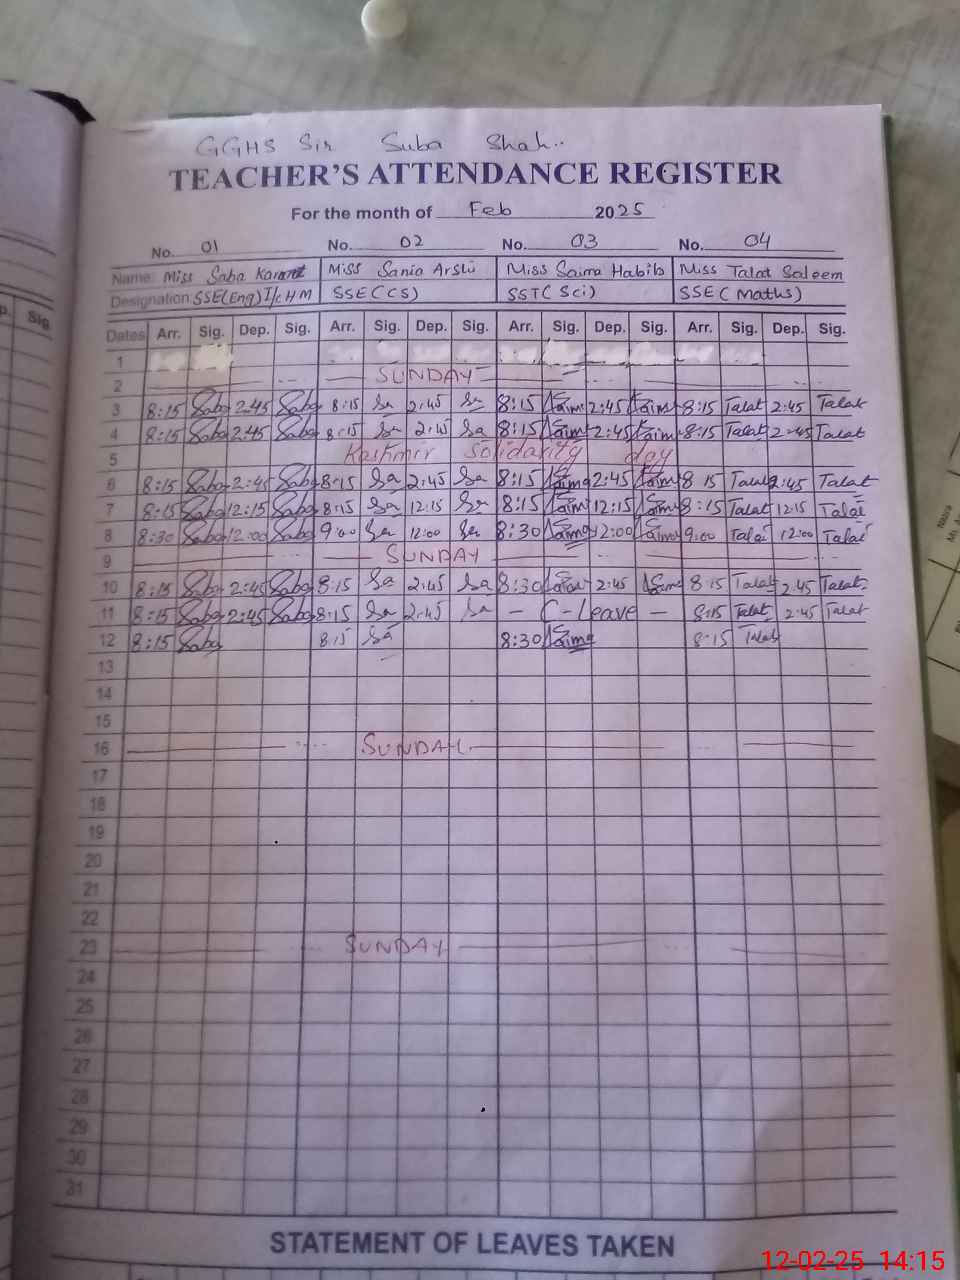 GGHS Sir Suba Shah..
TEACHER'S ATTENDANCE REGISTER
For the month of Feb 2025
No. 01 No. 02 No. 03 No. 04
Name: Miss Saba Miss Sania Arslu Miss Saima Habib Miss Talat Saleem
Designation SSE(Eng) I/c HM SSE(CS) SST(Sci) SSE(Maths)
Dates Arr. Sig. Dep. Sig. Arr. Sig. Dep. Sig. Arr. Sig. Dep. Sig. Arr. Sig. Dep. Sig.
1
2 SUNDAY
3 8:15 Saba 2:45 Saba 8:15 Sa 2:45 Sa 8:15 Saima 2:45 Saima 8:15 Talat 2:45 Talat
4 8:15 Saba 2:45 Saba 8:15 Sa 2:45 Sa 8:15 Saima 2:45 Saima 8:15 Talat 2:45 Talat
5 Kashmir solidarity day
6 8:15 Saba 2:45 Saba 8:15 Sa 2:45 Sa 8:15 Saima 2:45 Saima 8:15 Talat 2:45 Talat
7 8:15 Saba 12:15 Saba 8:15 Sa 12:15 Sa 8:15 Saima 12:15 Saima 8:15 Talat 12:15 Talat
8 8:30 Saba 12:00 Saba 9:00 Sa 12:00 Sa 8:30 Saima 12:00 Saima 9:00 Talat 12:00 Talat
9 SUNDAY
10 8:15 Saba 2:45 Saba 8:15 Sa 2:45 Sa 8:30 Saima 2:45 Saima 8:15 Talat 2:45 Talat
11 8:15 Saba 2:45 Saba 8:15 Sa 2:45 Sa - C-Leave - 8:15 Talat 2:45 Talat
12 8:15 Saba 8:15 Sa 8:30 Saima 8:15 Talat
13
14
15
16 SUNDAY
17
18
19
20
21
22
23 SUNDAY
24
25
26
27
28
29
30
31
STATEMENT OF LEAVES TAKEN
12-02-25 14:15